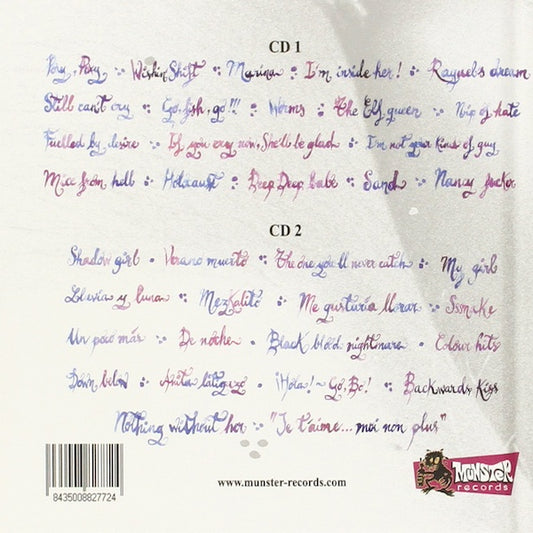 CD 1
Pony, Pony Wishin' Shift Marina I'm inside her! Raquel's dream
Still can't cry Go, fish, go!!! Worms The Elf queen Nip of hate
Fuelled by desire If you cry now, She'll be glad I'm not your kind of guy
Mice from hell Holocaust Deep Deep babe Sand Nancy fucker
CD 2
Shadow girl · Verano muerto The one you'll never catch My girl
Lluvia y luna Mezkalito Me gustaría llorar Ssmoke
Un poco más De noche Black blood nightmare Colour hits
Down below Anita latigazo ¡Hola! ~ Go, Bo! Backwards Kiss
Nothing without her "Je t'aime... moi non plus"
8435008827724
www.munster-records.com
MUNSTER
records